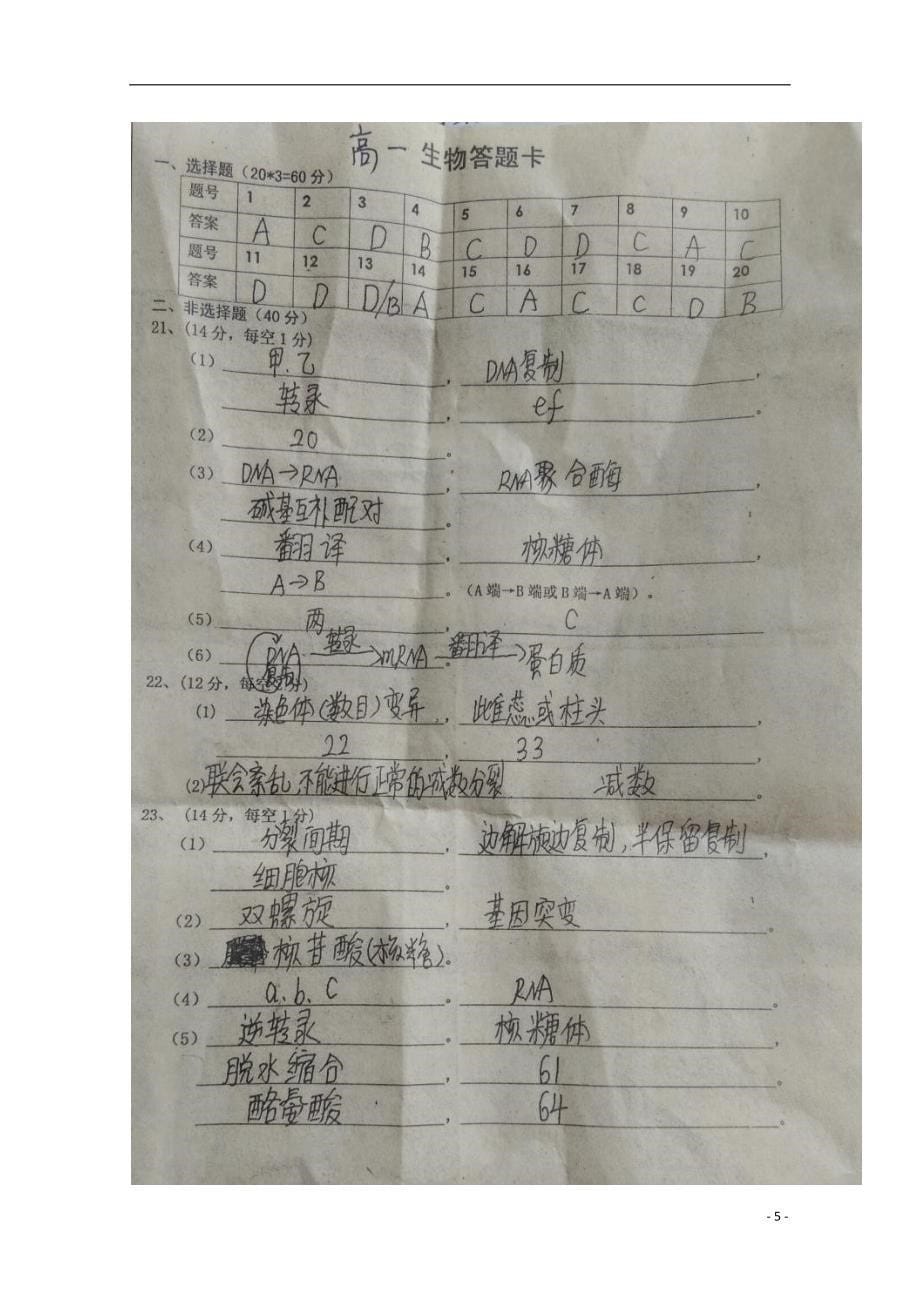 高一 生物答题卡
一、选择题（20*3=60分）
题号 1 2 3 4 5 6 7 8 9 10
答案 A C D B C D D C A C
题号 11 12 13 14 15 16 17 18 19 20
答案 D D D/B A C A C C D B
二、非选择题（40分）
21、（14分，每空1分）
（1） 甲、乙 ， DNA复制 ，
转录 ， ef 。
（2） 20 。
（3） DNA→RNA ， RNA聚合酶 ，
碱基互补配对 。
（4） 翻译 ， 核糖体 ，
A→B 。（A端→B端或B端→A端）。
（5） 两 ， C
（6） DNA 复制 转录 →mRNA 翻译 →蛋白质
22、（12分，每空2分）
（1） 染色体（数目）变异 ， 雌蕊或柱头 ，
22 ， 33
（2）联会紊乱，不能进行正常的减数分裂 减数 。
23、（14分，每空1分）
（1） 分裂间期 ， 边解旋边复制，半保留复制 ，
细胞核 。
（2） 双螺旋 ， 基因突变 。
（3） 核苷酸（核糖）。
（4） a、b、c 。 RNA 。
（5） 逆转录 。 核糖体 ，
脱水缩合 ， 61 。
酪氨酸 ， 64 。
- 5 -